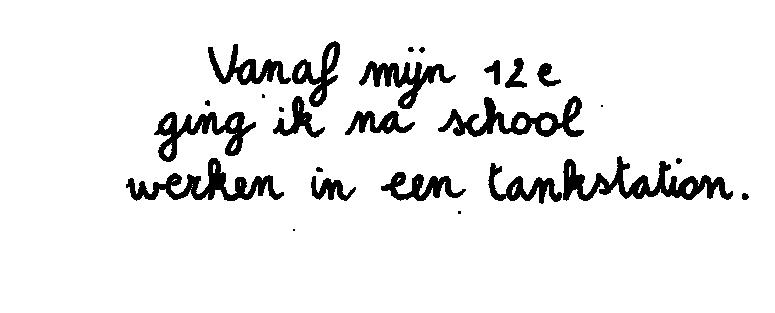 Vanaf mijn 12e
ging ik na school
werken in een tankstation.